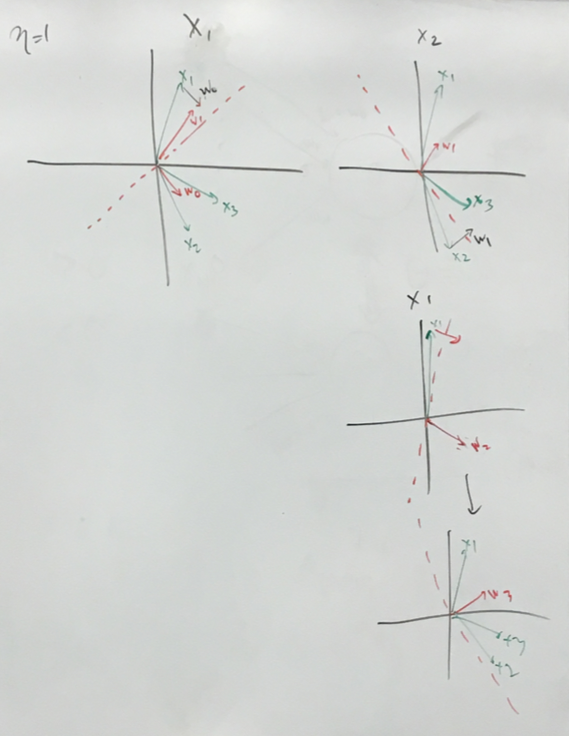 η=1
X₁
x₁
w₀
w₀
x₃
x₂
X₂
x₁
w₁
x₃
w₁
x₂
X₁
x₁
x₁
w₃
x₂